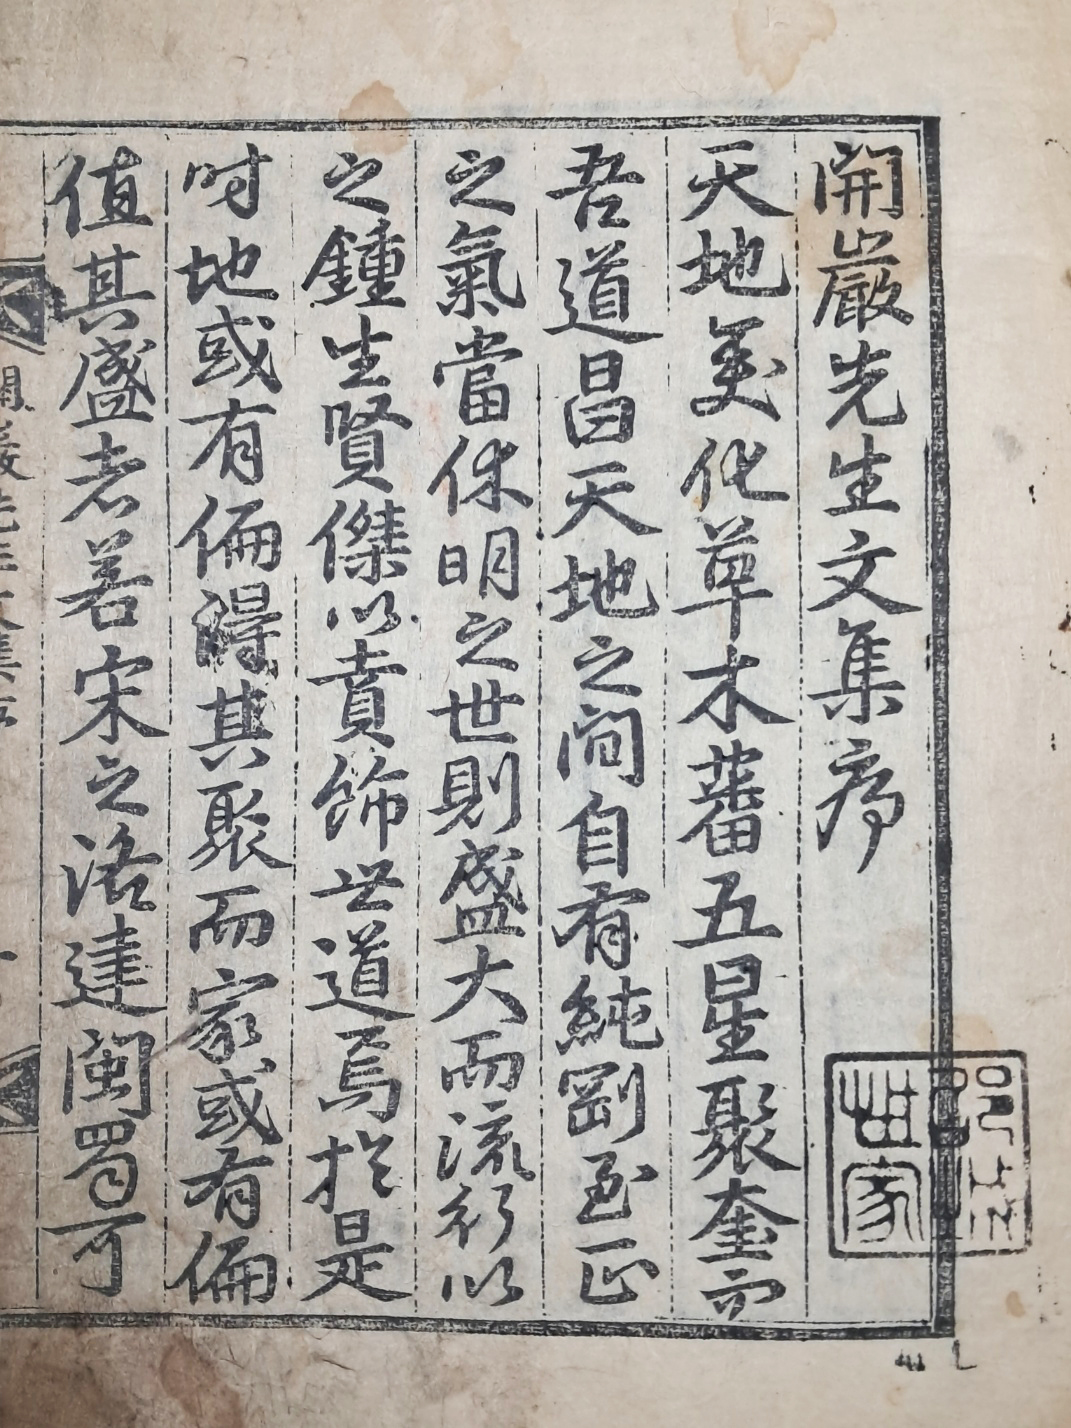 開巖先生文集序
天地美化草木蕃五星聚奎而
吾道昌天地之間自有純剛至正
之氣當休明之世則盛大而流行以
之鍾生賢傑以賁餙世道焉扵是
时地或有偏得其聚而家或有偏
值其盛者若宋之洛建閩蜀可
開巖先生文集序
世家